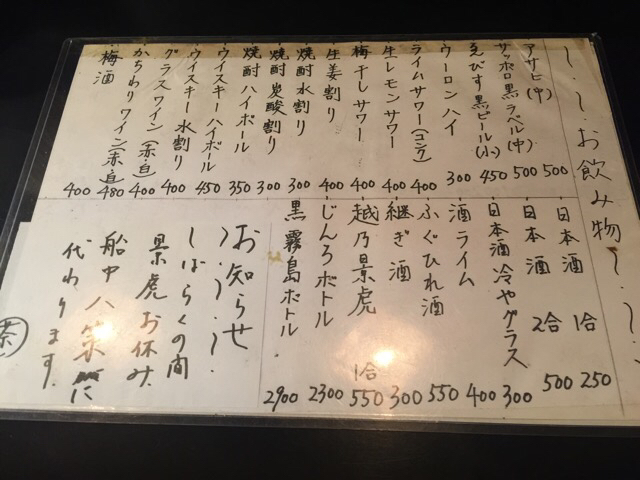 〜・〜・お飲み物〜・〜・
アサヒ(中) 500
サッポロ黒ラベル(中) 500
ゑびす黒ビール(小) 450
ウーロンハイ 300
ライムサワー(コンク) 400
生レモンサワー 400
梅干しサワー 400
生姜割り 400
焼酎水割り 300
焼酎炭酸割り 300
焼酎ハイボール 350
ウイスキーハイボール 450
ウイスキー水割り 400
グラスワイン(赤・白) 400
かちわりワイン(赤・白) 480
梅酒 400
日本酒 1合 250
日本酒 2合 500
日本酒 冷やグラス 300
酒ライム 400
ふぐひれ酒 550
継ぎ酒 300
越乃景虎 1合 550
じんろボトル 2300
黒霧島ボトル 2900
お知らせ
しばらくの間
景虎お休み
船中八策に
代わります